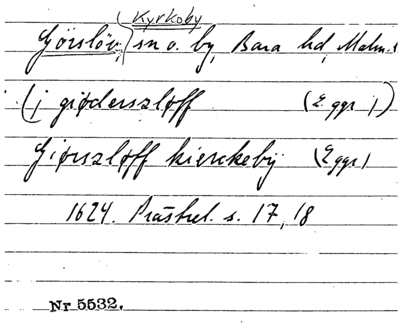 Kyrkoby
Görslöv, sn o. by, Bara hd, Malm.
(j giøderszløff (2 ggr)
Giørszløff kierckebÿ (2 ggr)
1624. Prästrel. s. 17, 18
Nr 5532.